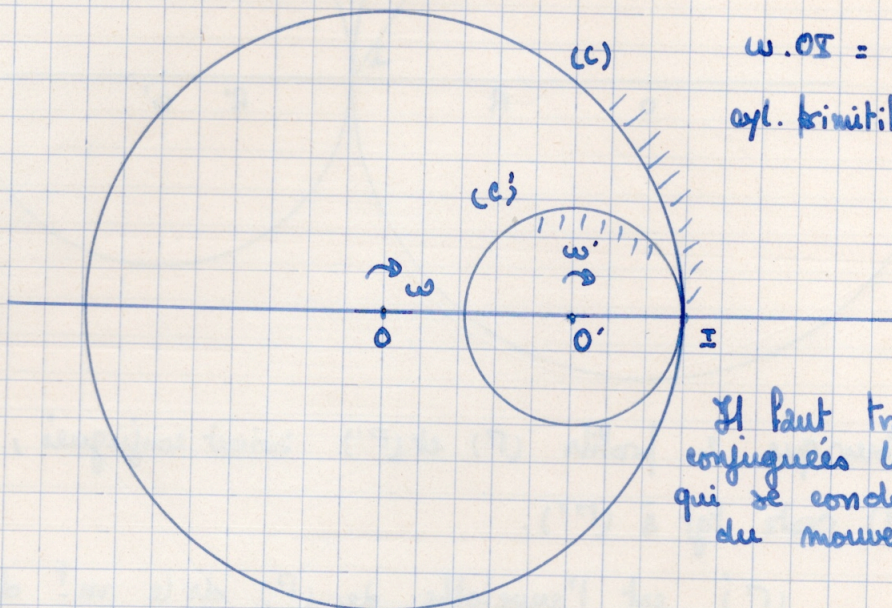 (C)
ω.OI =
cyl. primitif
(C')
ω'
ω
O
O'
I
Il faut tr
conjuguées l
qui se condu
du mouve